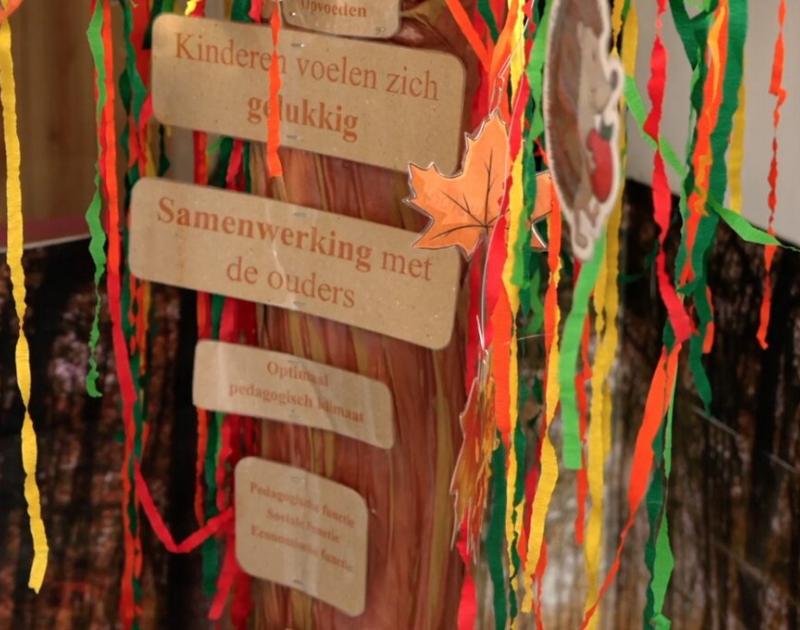 Opvoeden
Kinderen voelen zich
gelukkig
Samenwerking met
de ouders
Optimaal
pedagogisch klimaat
Pedagogische functie
Sociale functie
Economische functie